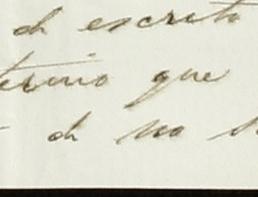 de escrito
termino que
de no